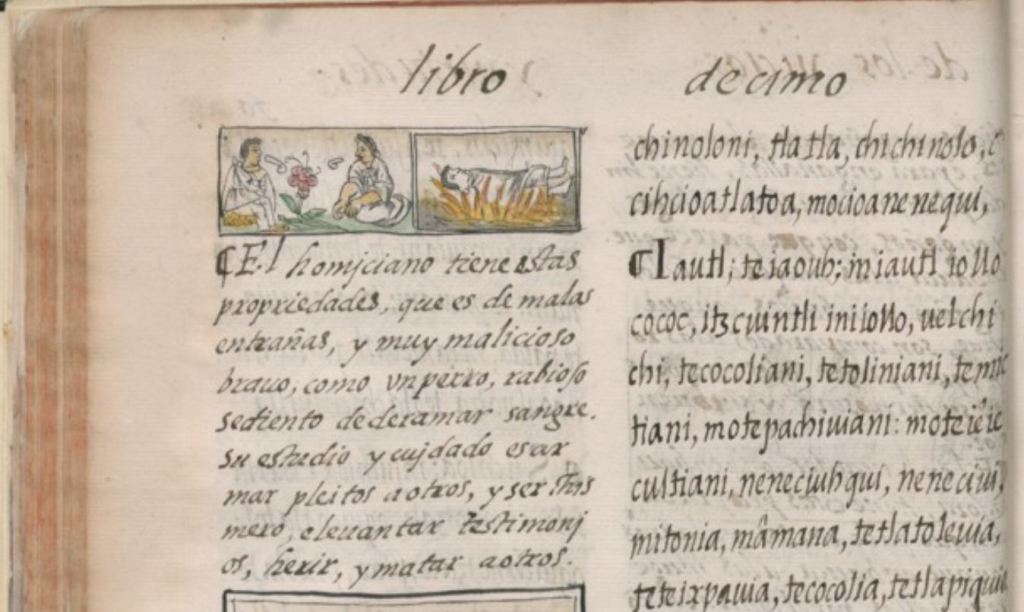 libro decimo
¶ El homiçiano tiene estas
propriedades, que es de malas
entrañas, y muy malicioso
brauo, como vn perro, rabioso
sediento de deramar sangre.
su estudio y cujdado es ar
mar pleitos a otros, y ser
mero, eleuantar testimonj
os, herir, y matar a otros.
chinoloni, tlatla, chichinolo,
cihcioatlatoa, mocioanenequi,
¶ Iautl; teiaouh; in iautl iollo
cococ, itzcuintli in iiollo, uel chi
chi, tecocoliani, tetoliniani,
tiani, motepachiuiani:
cultiani, neneciuhqui,
mitonia, mâmana, tetlatoleuia,
teteixpauia, tecocolia,